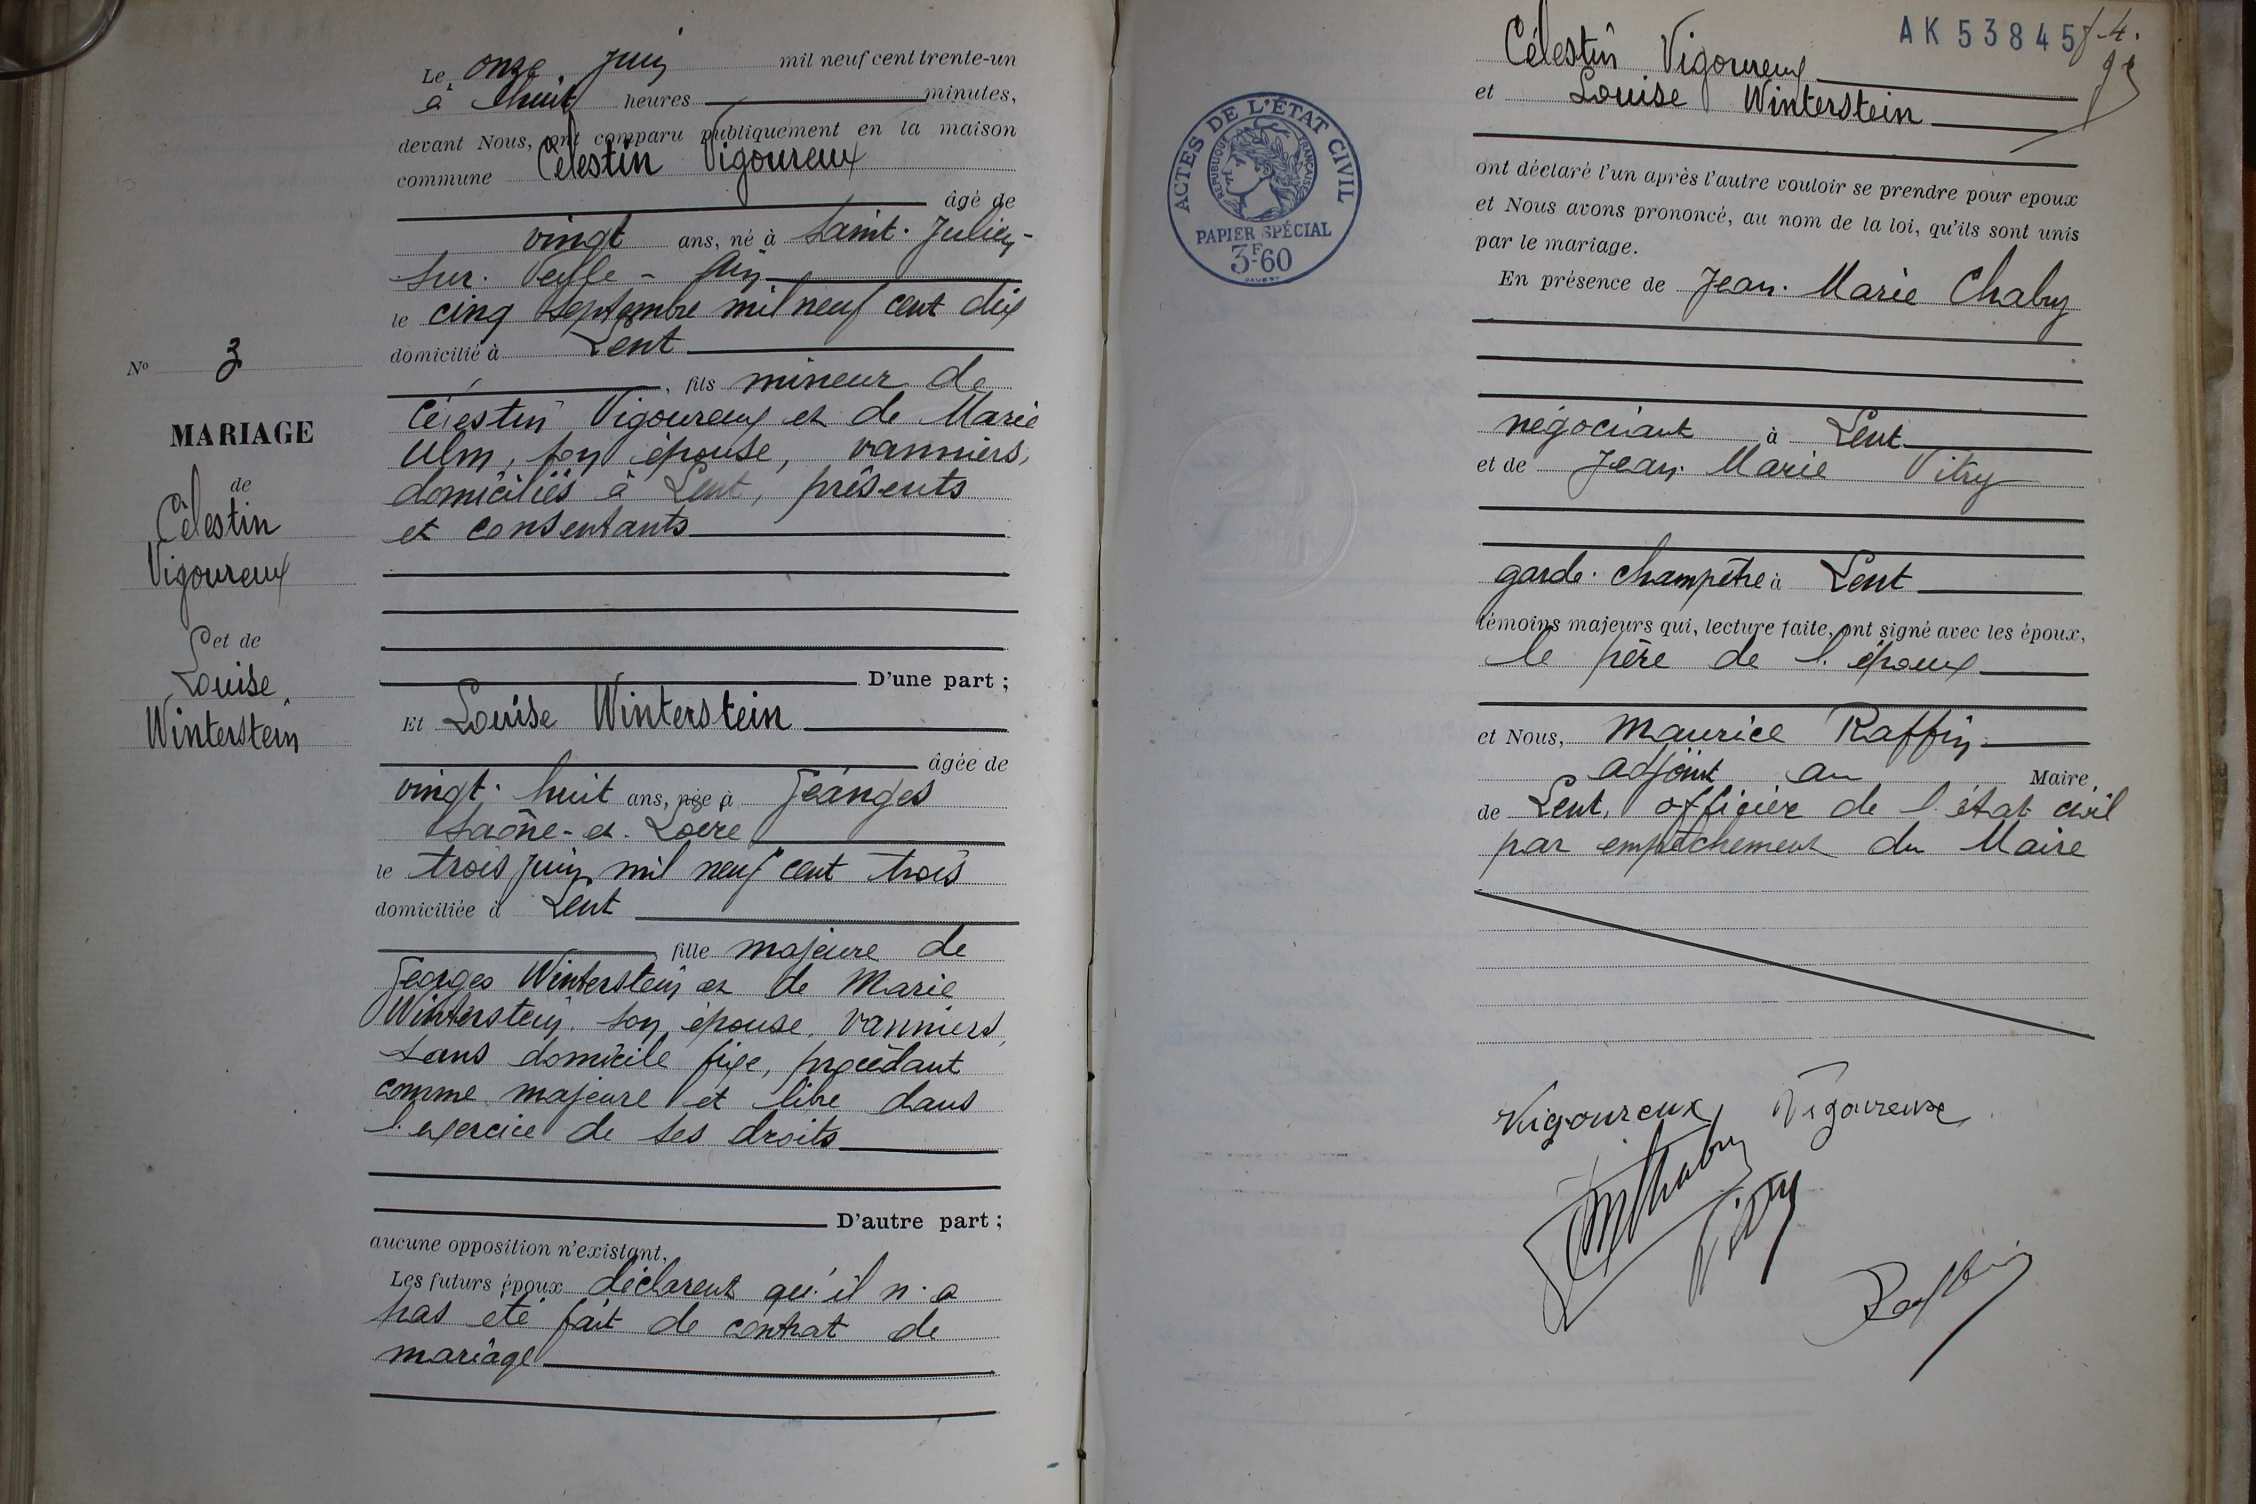 Le onze juin mil neuf cent trente-un
à huit heures minutes,
devant Nous, ont comparu publiquement en la maison
commune Célestin Vigoureux
âgé de
vingt ans, né à Saint-Julien-
sur-Veyle - Ain
le cinq septembre mil neuf cent dix
domicilié à Lent
fils mineur de
Célestin Vigoureux et de Marie
Ulm, son épouse, vanniers,
domiciliés à Lent, présents
et consentants
D'une part ;
Et Louise Winterstein
âgée de
vingt-huit ans, née à
Saône-et-Loire
le trois juin mil neuf cent trois
domiciliée à Lent
fille majeure de
Georges Winterstein et de Marie
Winterstein, son épouse, vanniers,
sans domicile fixe, procédant
comme majeure et libre dans
l'exercice de ses droits
D'autre part ;
aucune opposition n'existant,
Les futurs époux déclarent qu'il n'a
pas été fait de contrat de
mariage
No 3
MARIAGE
de
Célestin
Vigoureux
et de
Louise
Winterstein
AK 53845
Célestin Vigoureux
et Louise Winterstein
ont déclaré l'un après l'autre vouloir se prendre pour epoux
et Nous avons prononcé, au nom de la loi, qu'ils sont unis
par le mariage.
En présence de Jean-Marie Chabry
négociant à Lent
et de Jean-Marie Vitry
garde-champêtre à Lent
témoins majeurs qui, lecture faite, ont signé avec les époux,
le père de l'époux
et Nous, Maurice Raffin
adjoint au Maire,
de Lent, officier de l'état civil
par empêchement du Maire
Vigoureux Vigoureux
Chabry
Vitry
Raffin
ACTES DE L'ÉTAT CIVIL
RÉPUBLIQUE FRANÇAISE
PAPIER SPÉCIAL
3F60